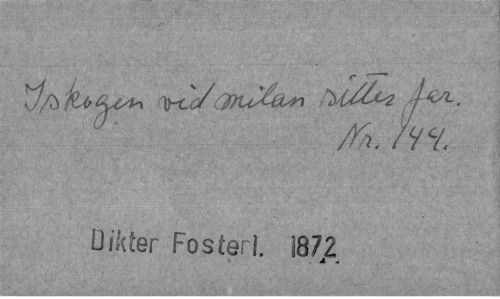 I skogen vid milan sitter far.
Nr. 144.
Dikter Fosterl. 1872